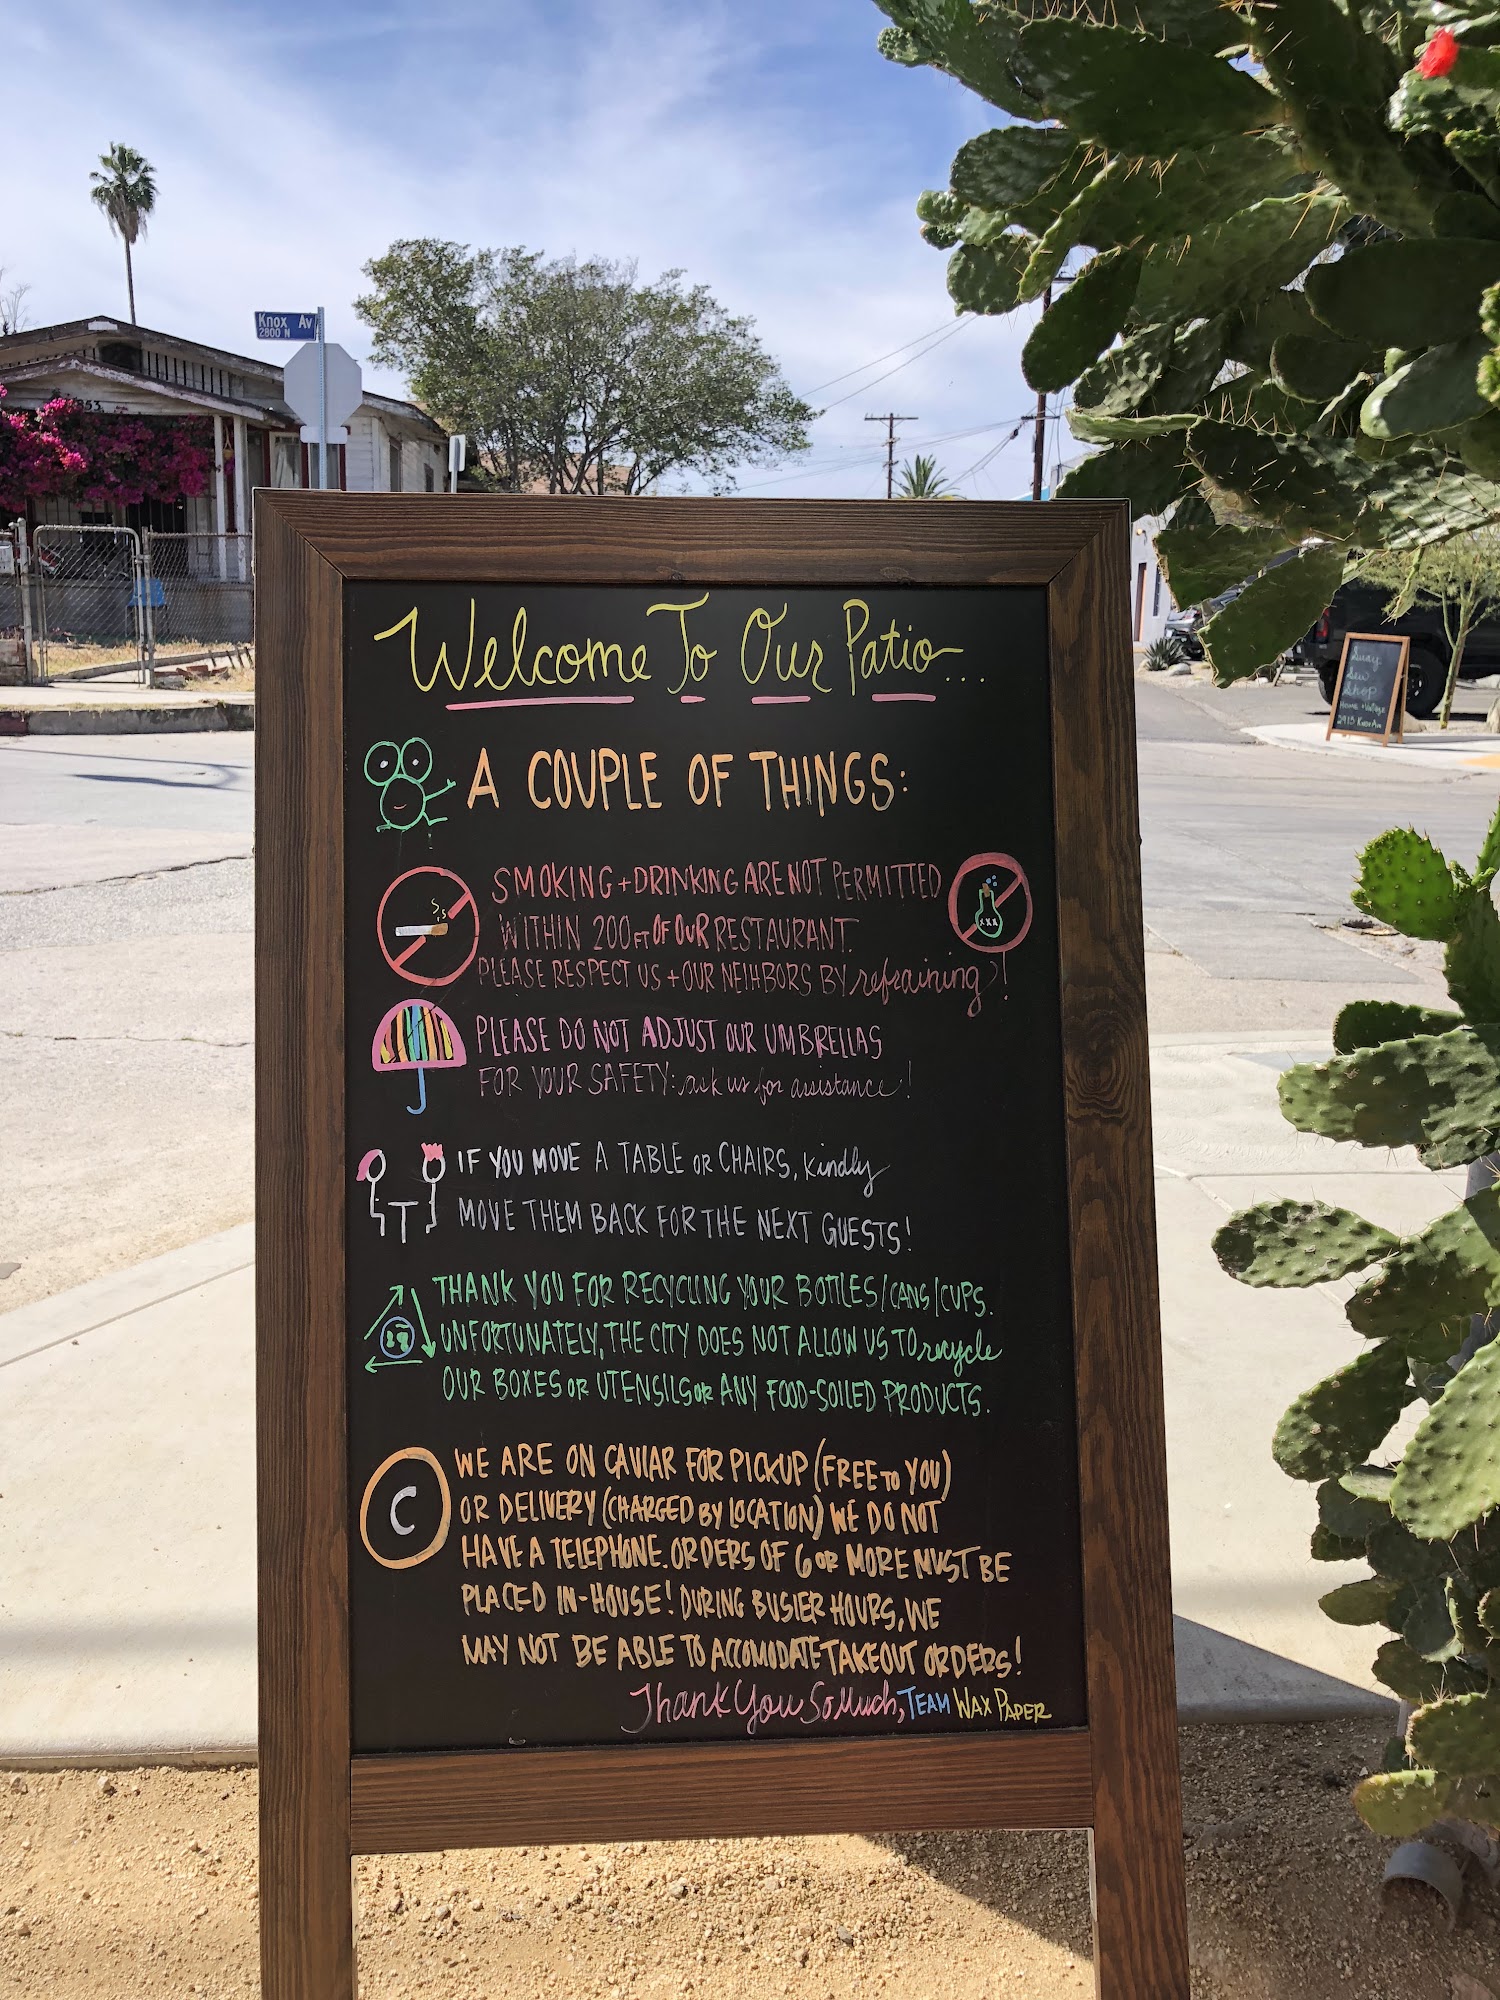 Knox Av
2800 N
Welcome To Our Patio...
A COUPLE OF THINGS:
SMOKING + DRINKING ARE NOT PERMITTED
WITHIN 200 FT OF OUR RESTAURANT.
PLEASE RESPECT US + OUR NEIHBORS BY refraining!
XXX
PLEASE DO NOT ADJUST OUR UMBRELLAS
FOR YOUR SAFETY: ask us for assistance!
IF YOU MOVE A TABLE OR CHAIRS, kindly
MOVE THEM BACK FOR THE NEXT GUESTS!
THANK YOU FOR RECYCLING YOUR BOTTLES/CANS/CUPS.
UNFORTUNATELY, THE CITY DOES NOT ALLOW US TO recycle
OUR BOXES OR UTENSILS OR ANY FOOD-SOILED PRODUCTS.
C
WE ARE ON CAVIAR FOR PICKUP (FREE TO YOU)
OR DELIVERY (CHARGED BY LOCATION) WE DO NOT
HAVE A TELEPHONE. ORDERS OF 6 OR MORE MUST BE
PLACED IN-HOUSE! DURING BUSIER HOURS, WE
MAY NOT BE ABLE TO ACCOMODATE TAKEOUT ORDERS!
Thank You So Much, TEAM WAX PAPER
Sew
Shop
Home + Vintage
2915 Knox Av